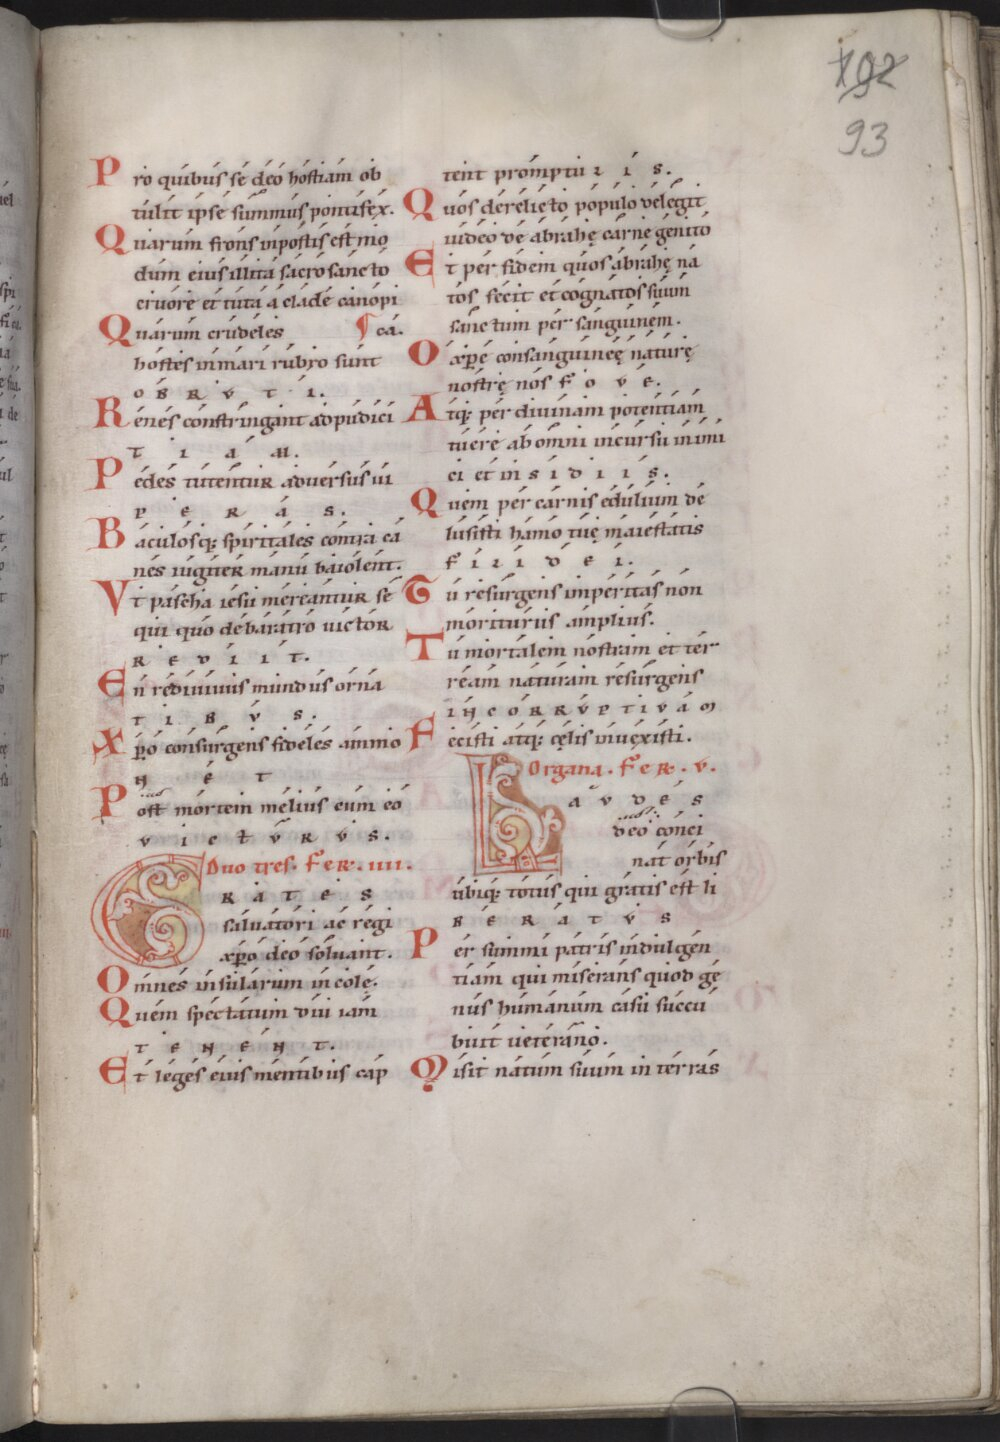 192
93
Pro quibus se deo hostiam ob
tulit ipse summus pontifex.
Quarum frons in postis est mo
dum eius illita sacro sancto
cruore et tuta a clade canopi
Quarum crudeles ¶ca.
hostes in mari rubro sunt
OBRVTI.
Renes constringant ad pudici
TIAM.
Pedes tutentur adversus ui
PERAS.
Baculosq; spiritales contra ca
nes iugiter manu baiolent.
Vt pascha iesu mereantur se
qui quo de baratro uictor
REDIIT.
En rediuiuus mundus orna
TIBVS.
Xpo consurgens fideles ammo
NET
Post mortem melius eum eo
VICTVRVS.
Duo tres. FER. IIII.
GRATES
saluatori ac regi
xpo deo soluant.
Omnes insularum incole.
Quem spectatum diu iam
TENENT.
Et leges eius mentibus cap
tent promptuIIS.
Quos derelicto populo delegit
iudeo de abrahę carne genito
Et per fidem quos abrahę na
tos fecit et cognatos suum
sanctum per sanguinem.
O xpe consanguineę naturę
nostrę nos FOVE.
Atq; per diuinam potentiam
tuere ab omni incursu inimi
ci et insIDIIS.
Quem per carnis edulium de
lusisti hamo tuę maiestatis
FILI DEI.
Tu resurgens imperitas non
moriturus amplius.
Tu mortalem nostram et ter
ream naturam resurgens
INCORRVPTIVAM
Fecisti atq; cęlis inuexisti.
Organa. FER. V.
LAVDES
deo conci
nat orbis
ubiq; totus qui gratis est li
BERATVS
Per summi patris indulgen
tiam qui miserans quod ge
nus humanum casu succu
buit ueterano.
Misit natum suum in terras